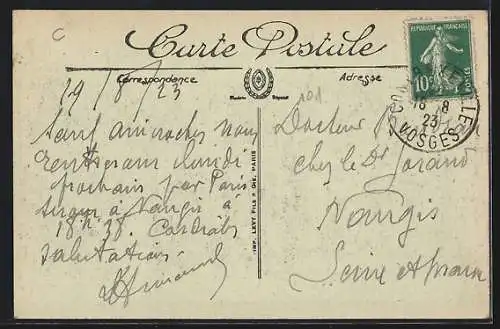 C
Carte Postale
Correspondance
Adresse
Modèle Déposé
RÉPUBLIQUE FRANÇAISE
10c
POSTES
18 8
23
VOSGES
101
19/8/23
Sauf anicroches nous
rentrerons lundi
prochain par Paris
à Nangis à
18h 38. Cordiales
salutations
Docteur
chez le Dr
Nangis
Seine et marne
IMP. LEVY FILS & CIE, PARIS